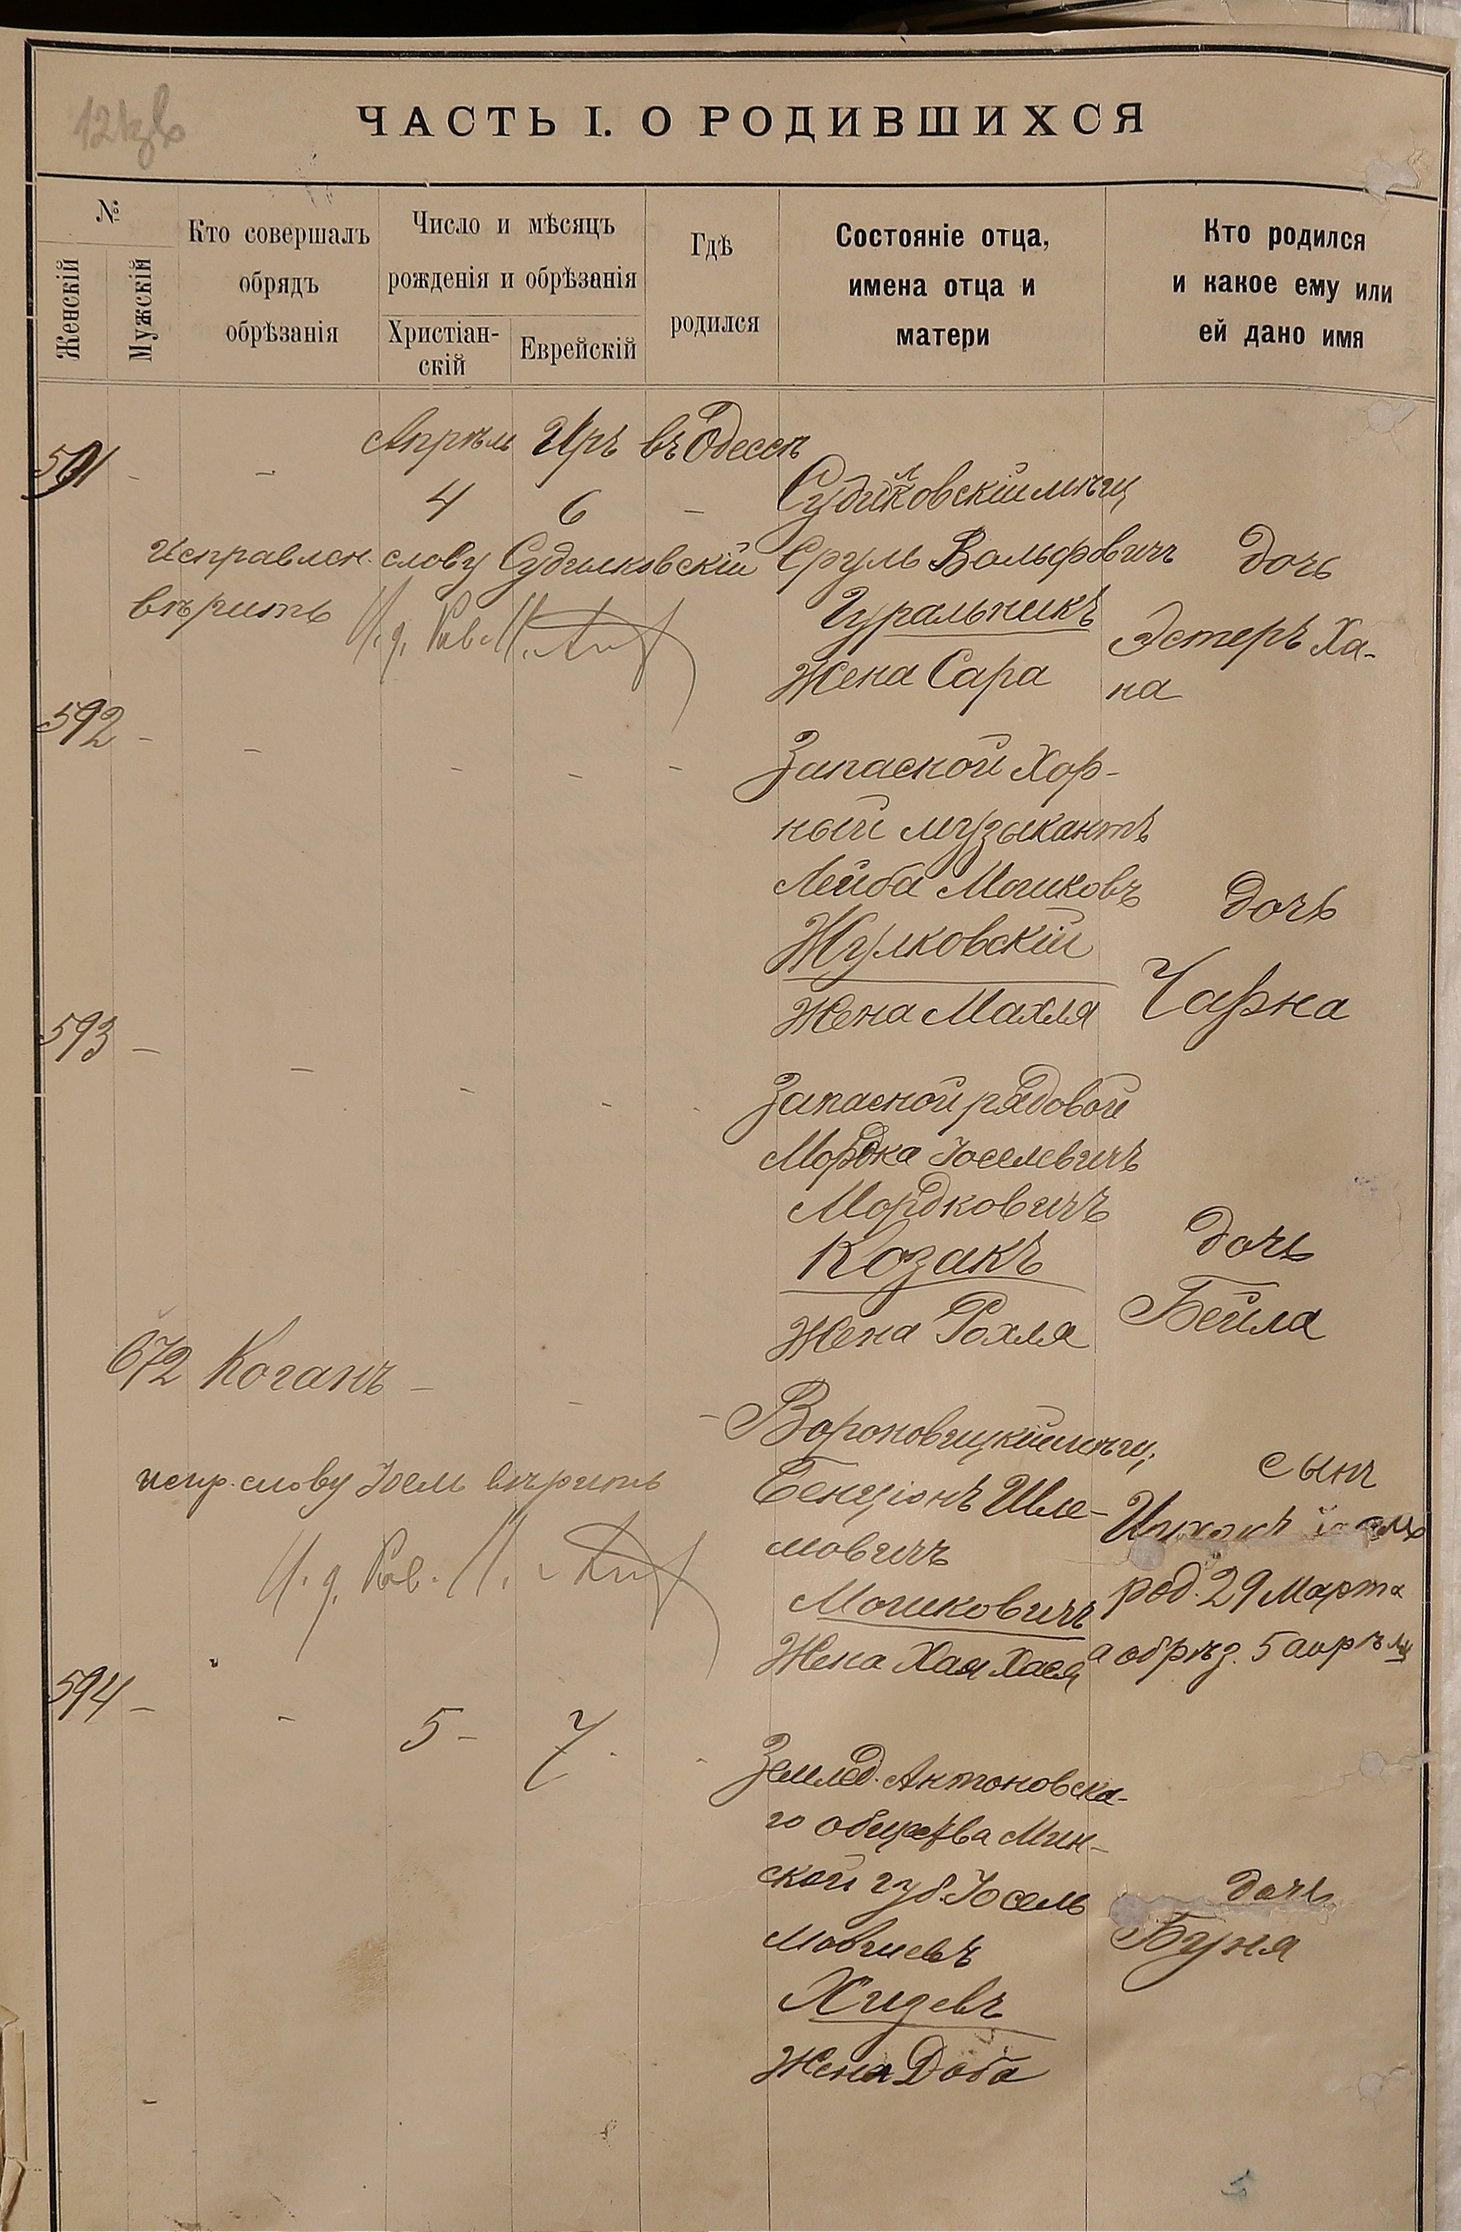 ЧАСТЬ I. О РОДИВШИХСЯ
№
Женскій
Мужскій
Кто совершалъ
обрядъ
обрѣзанія
Число и мѣсяцъ
рожденія и обрѣзанія
Христіан-
скій
Еврейскій
Гдѣ
родился
Состояніе отца,
имена отца и
матери
Кто родился
и какое ему или
ей дано имя
Апрѣль Иръ въ Одессѣ
591 - -
4 6 -
Судилковскій мѣщ
Сруль Вольфовичъ
Гуральникъ
Жена Сара
дочь
Эстеръ Ха-
на
Исправлен. слову Судилковскій
вѣрить И. д. Рав.
592 - - - - -
Запасной Хор-
ный музыкантъ
Лейба Мошковъ
Жулковскій
Жена Махля
дочь
Чарна
593 - - - - -
Запасной рядовой
Мордка Іоселевичъ
Мордковичъ
Козакъ
Жена Рохля
дочь
Бейла
672 Коганъ - - -
Вороновицкій мѣщ.
Бенціонъ Шле-
мовичъ
Мошковичъ
Жена Хая Хася
сынъ
род. 29 Марта
а обрѣз. 5 апрѣля
испр. слову Іосль вѣрить
И. д. Рав.
594 - - 5 - 7 - -
Землед. Антоновска-
го общества Мин-
ской губ. Іосель
Мовшевъ
Хидевъ
Жена Доба
дочь
Буня